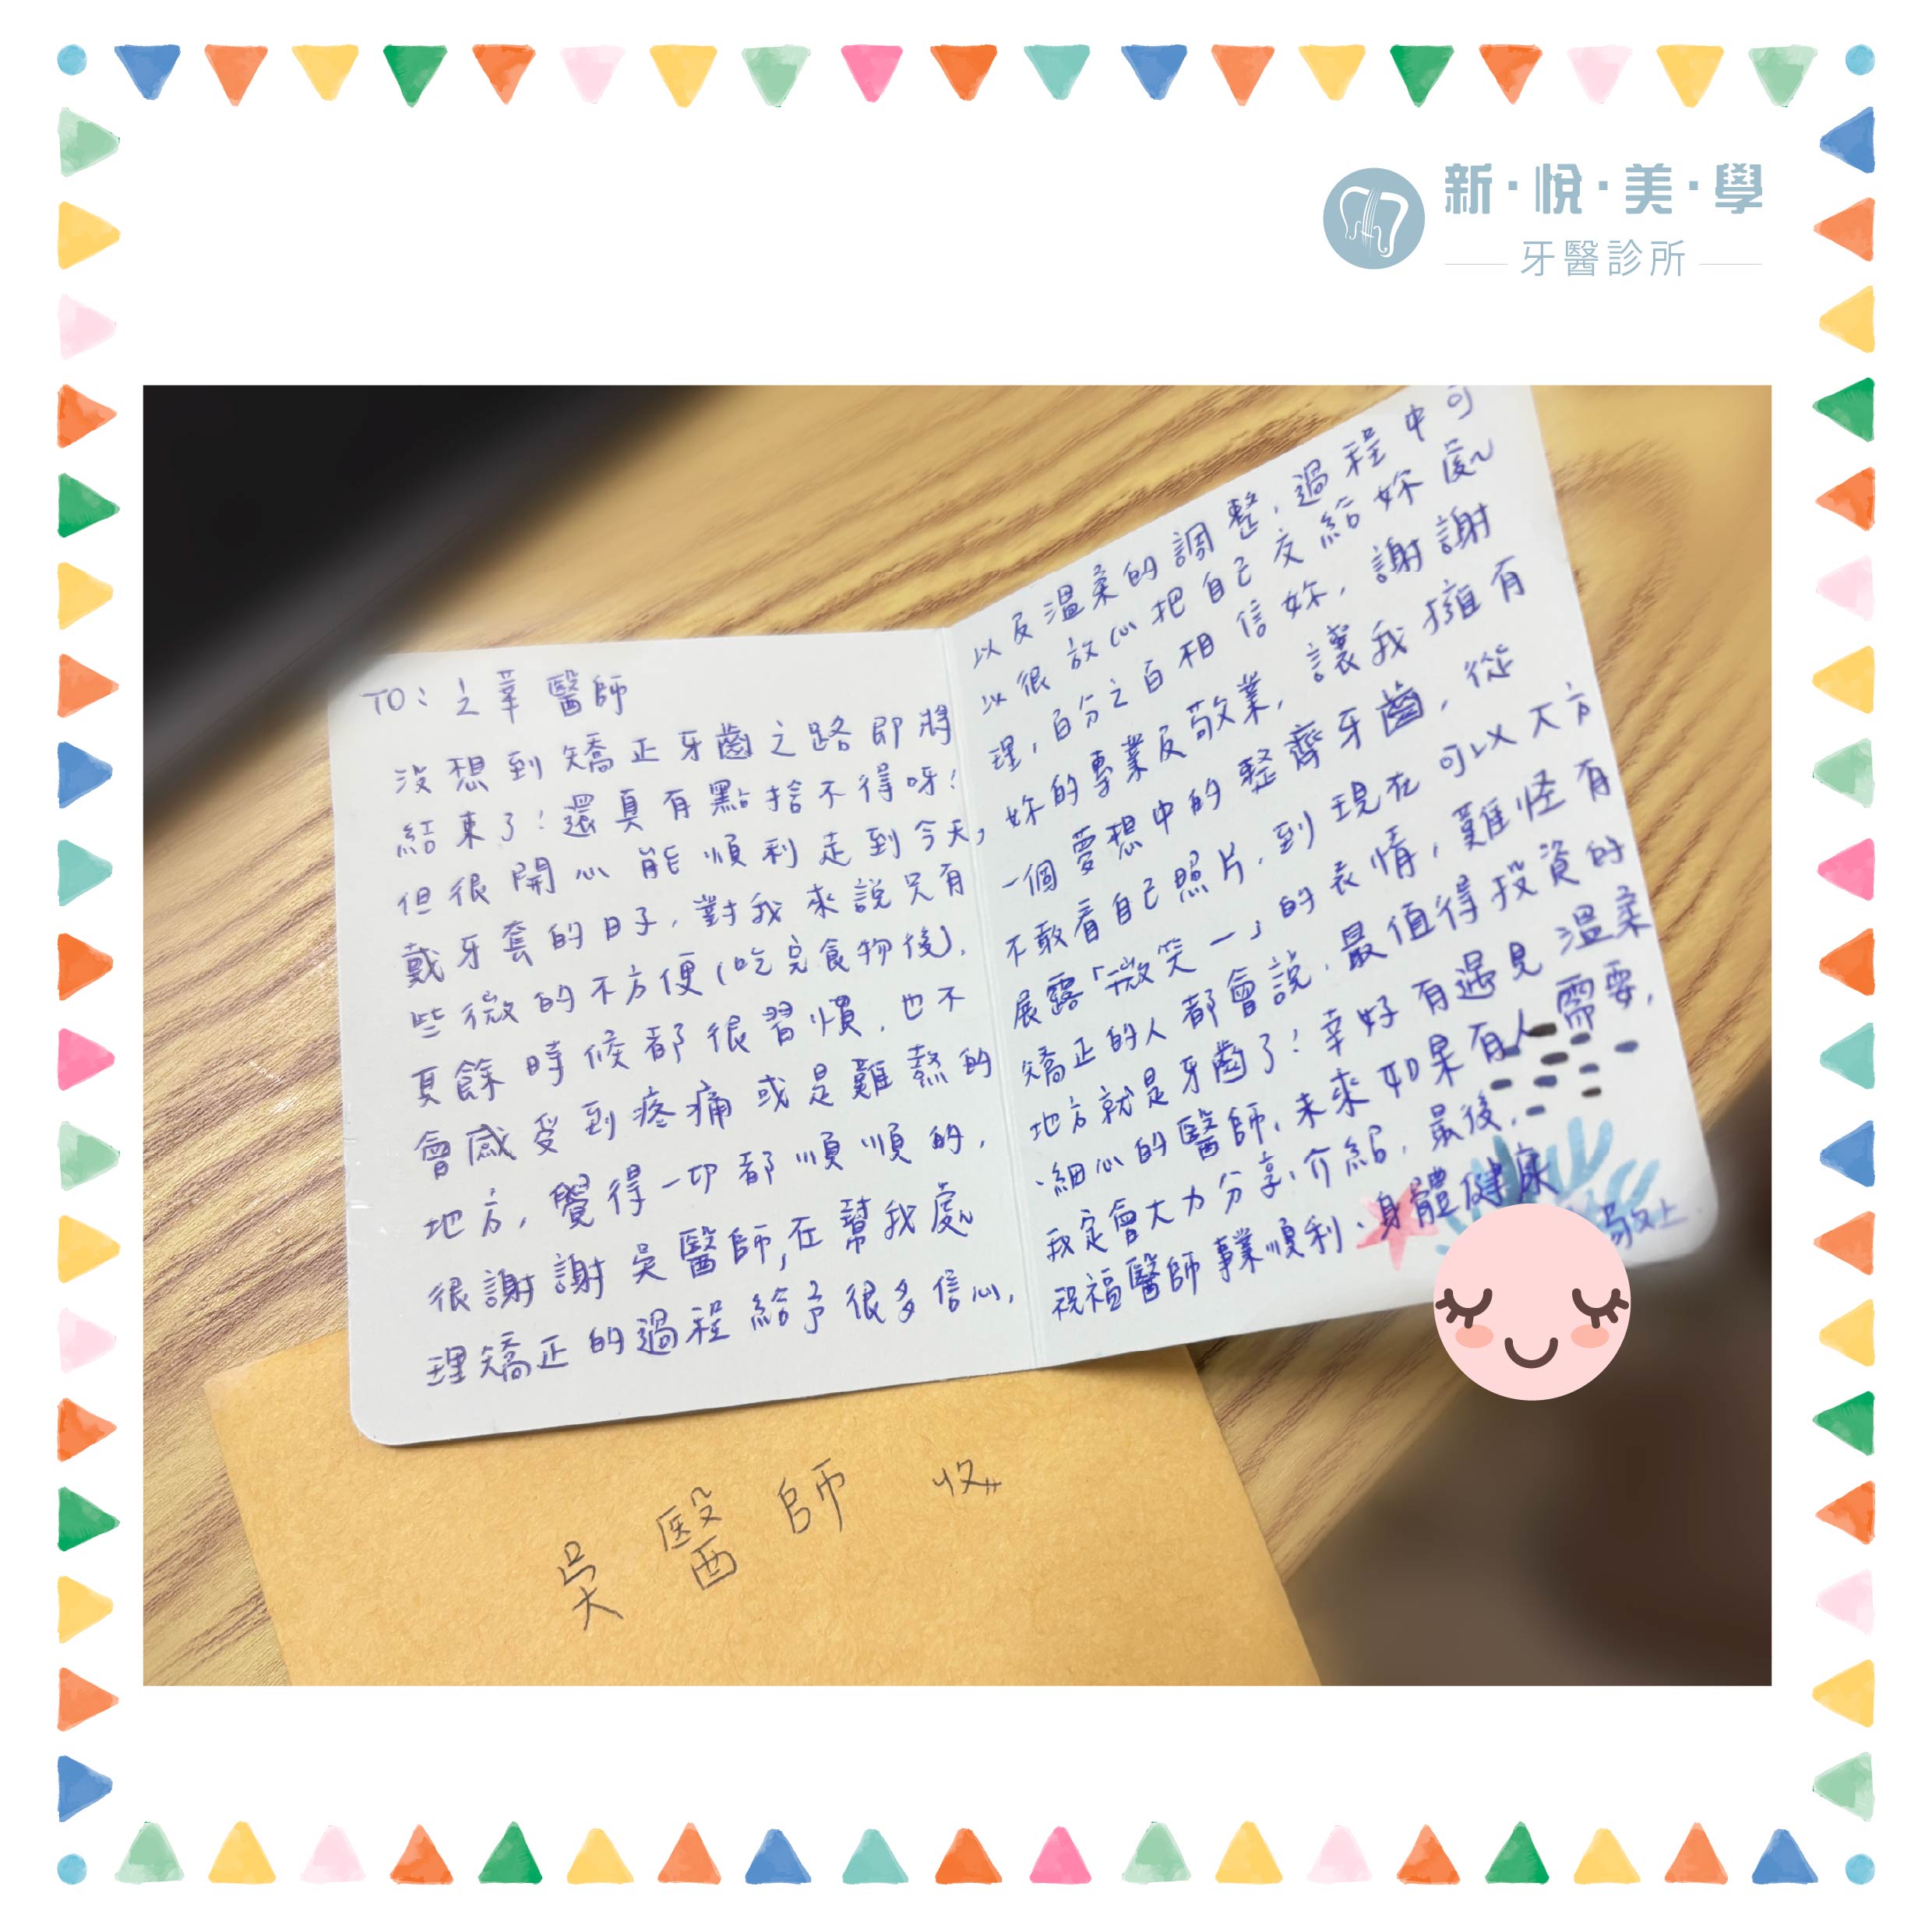 新·悅·美·學
牙醫診所
TO：之華醫師
沒想到矯正牙齒之路即將
結束了！還真有點捨不得呀！
但很開心能順利走到今天，
戴牙套的日子，對我來說只有
些微的不方便（吃完食物後），
其餘時候都很習慣，也不
會感受到疼痛或是難熬的
地方，覺得一切都順順的，
很謝謝吳醫師，在幫我處
理矯正的過程給予很多信心，
以及溫柔的調整，過程中可
以很放心把自己交給妳處
理，百分之百相信妳，謝謝
妳的專業及敬業，讓我擁有
一個夢想中的整齊牙齒，從
不敢看自己照片，到現在可以大方
展露「微笑一」的表情，難怪有
矯正的人都會說，最值得投資的
地方就是牙齒了！幸好有遇見溫柔
、細心的醫師，未來如果有人需要，
我定會大力分享、介紹，最後，
祝福醫師事業順利、身體健康
敬上
吳醫師 收